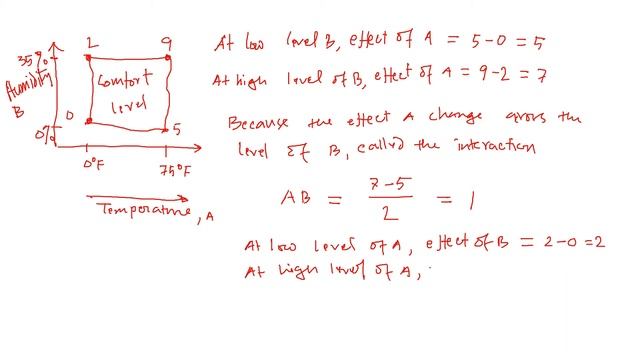 2 9
35%
Humidity
B
Comfort
level
0
5
0%
0°F 75°F
Temperature, A
At low level B, effect of A = 5-0 = 5
At high level of B, effect of A = 9-2 = 7
Because the effect A change across the
level of B, called the interaction
AB = 7-5 / 2 = 1
At low level of A, effect of B = 2-0 = 2
At high level of A,